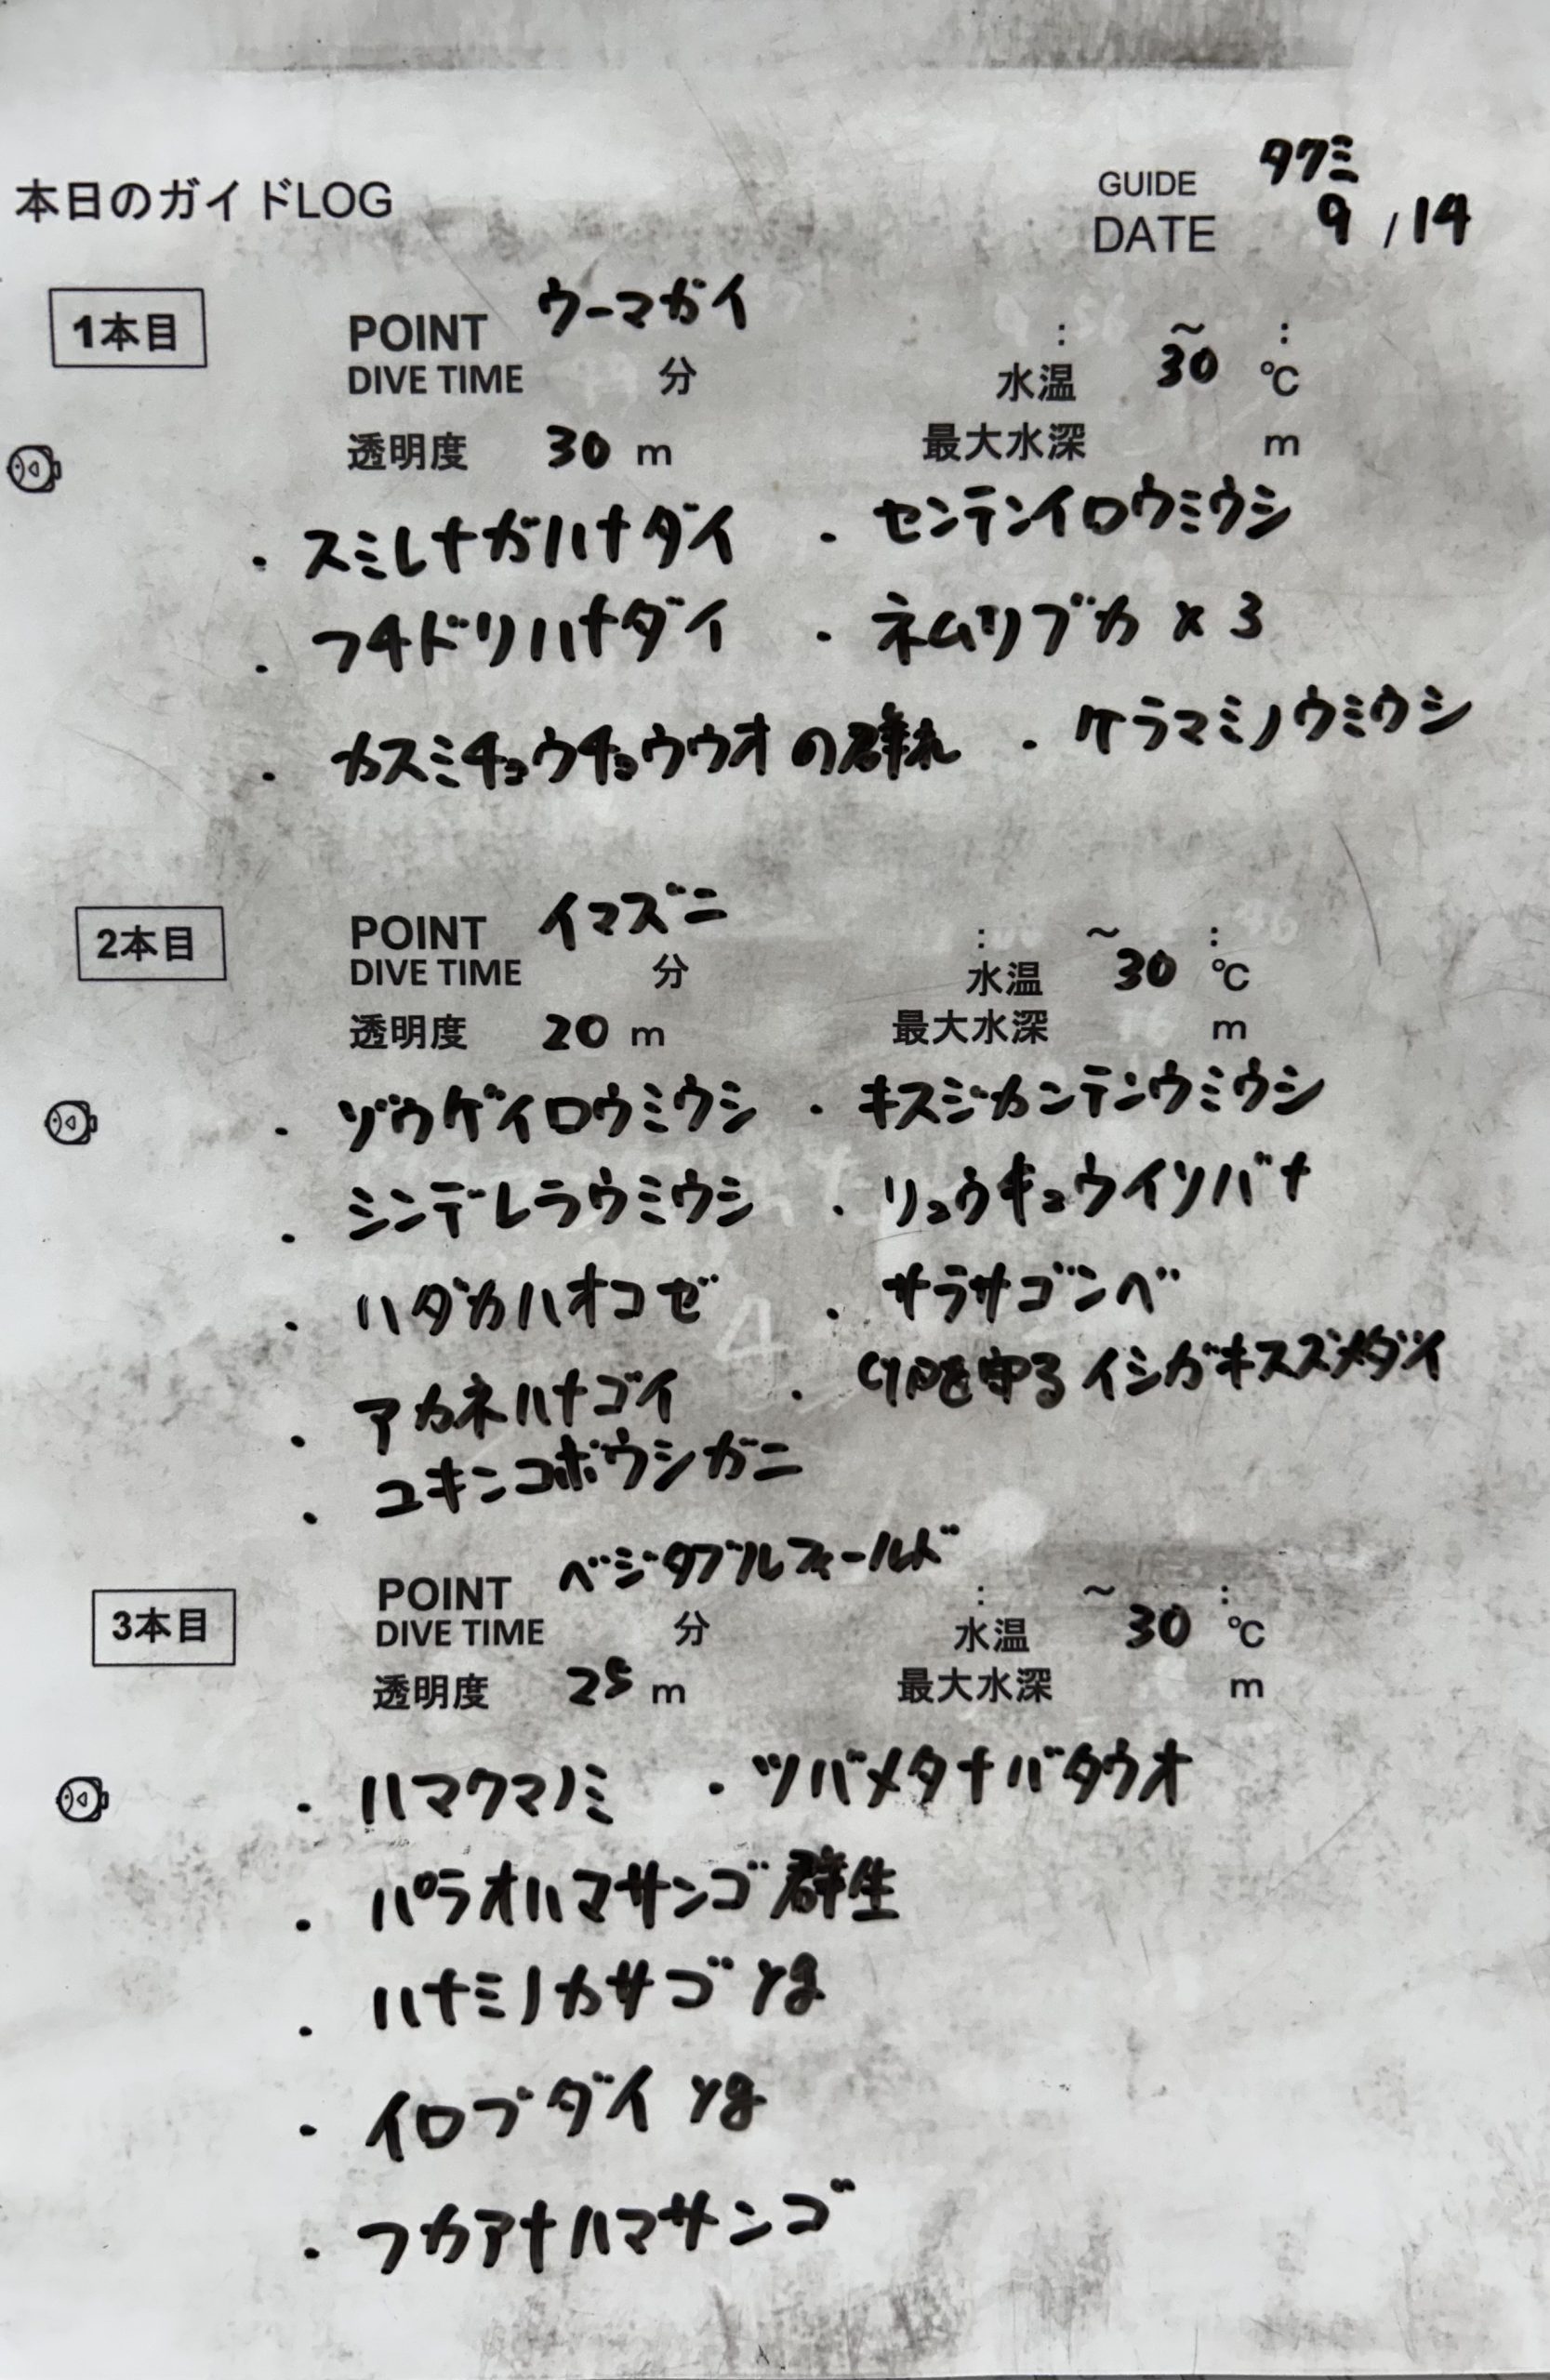 タクミ
本日のガイドLOG GUIDE
DATE 9 / 14
1本目 POINT ウーマガイ : ~ :
DIVE TIME 分 水温 30 ℃
透明度 30 m 最大水深 m
・スミレナガハナダイ ・センテンイロウミウシ
・フチドリハナダイ ・ネムリブカ × 3
・カスミチョウチョウウオの群れ ・ケラマミノウミウシ
2本目 POINT イマズニ : ~ :
DIVE TIME 分 水温 30 ℃
透明度 20 m 最大水深 m
・ゾウゲイロウミウシ ・キスジカンテンウミウシ
・シンデレラウミウシ ・リュウキュウイソバナ
・ハダカハオコゼ ・サラサゴンベ
・アカネハナゴイ ・卵を守るイシガキスズメダイ
・ユキンコボウシガニ
3本目 POINT ベジタブルフィールド : ~ :
DIVE TIME 分 水温 30 ℃
透明度 25 m 最大水深 m
・ハマクマノミ ・ツバメタナバタウオ
・パラオハマサンゴ群生
・ハナミノカサゴ yg
・イロブダイ yg
・フカアナハマサンゴ